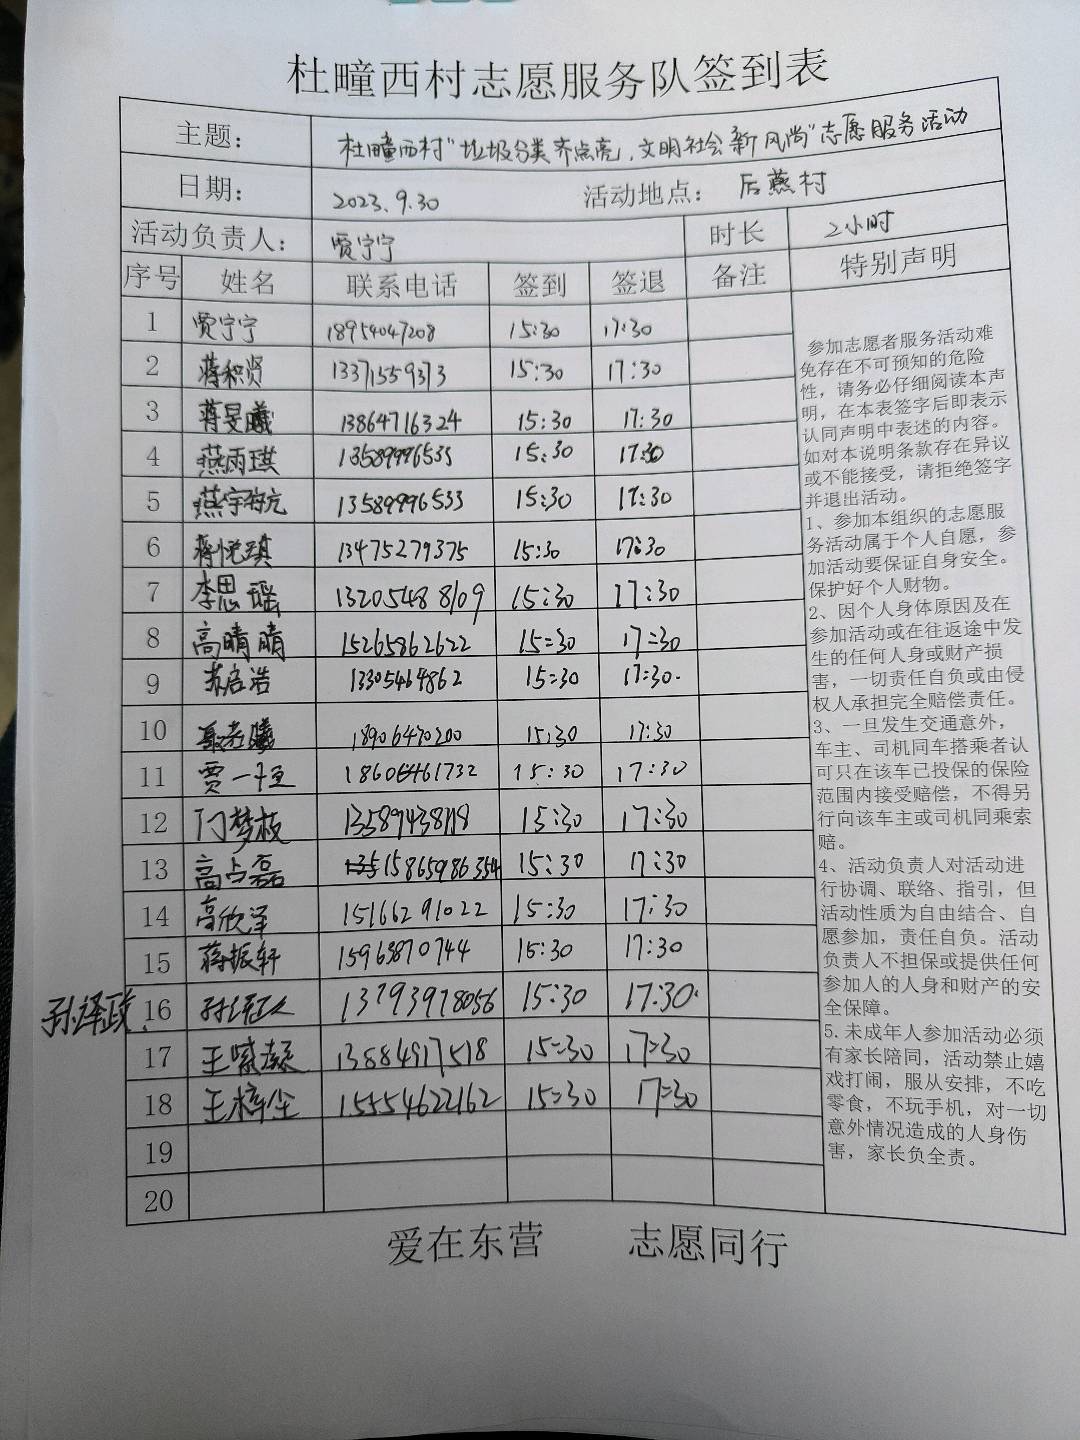 杜疃西村志愿服务队签到表
主题： 杜疃西村“垃圾分类齐点亮，文明社会新风尚”志愿服务活动
日期： 2023.9.30 活动地点： 后燕村
活动负责人： 贾宁宁 时长 2小时
序号 姓名 联系电话 签到 签退 备注 特别声明
1 贾宁宁 18954047208 15:30 17:30
2 蒋积贤 13371559373 15:30 17:30
3 蒋旻曦 13864716324 15:30 17:30
4 燕雨琪 13589996533 15:30 17:30
5 燕宇 13589996533 15:30 17:30
6 蒋悦琪 13475279375 15:30 17:30
7 李思瑶 13205488109 15:30 17:30
8 高晴晴 15265862622 15:30 17:30
9 苏启浩 13305464862 15:30 17:30.
10 18906470200 15:30 17:30
11 贾一恒 18606461732 15:30 17:30
12 门梦枝 15:30 17:30
13 高占磊 15865986354 15:30 17:30
14 高欣泽 15166291022 15:30 17:30
15 蒋振轩 15963870744 15:30 17:30
孙泽政. 16 13793978056 15:30 17:30.
17 王 13884917518 15:30 17:30
18 王梓尘 15554622162 15:30 17:30
19
20
参加志愿者服务活动难
免存在不可预知的危险
性，请务必仔细阅读本声
明，在本表签字后即表示
认同声明中表述的内容。
如对本说明条款存在异议
或不能接受，请拒绝签字
并退出活动。
1、参加本组织的志愿服
务活动属于个人自愿，参
加活动要保证自身安全。
保护好个人财物。
2、因个人身体原因及在
参加活动或在往返途中发
生的任何人身或财产损
害，一切责任自负或由侵
权人承担完全赔偿责任。
3、一旦发生交通意外，
车主、司机同车搭乘者认
可只在该车已投保的保险
范围内接受赔偿，不得另
行向该车主或司机同乘索
赔。
4、活动负责人对活动进
行协调、联络、指引，但
活动性质为自由结合、自
愿参加，责任自负。活动
负责人不担保或提供任何
参加人的人身和财产的安
全保障。
5.未成年人参加活动必须
有家长陪同，活动禁止嬉
戏打闹，服从安排，不吃
零食，不玩手机，对一切
意外情况造成的人身伤
害，家长负全责。
爱在东营 志愿同行